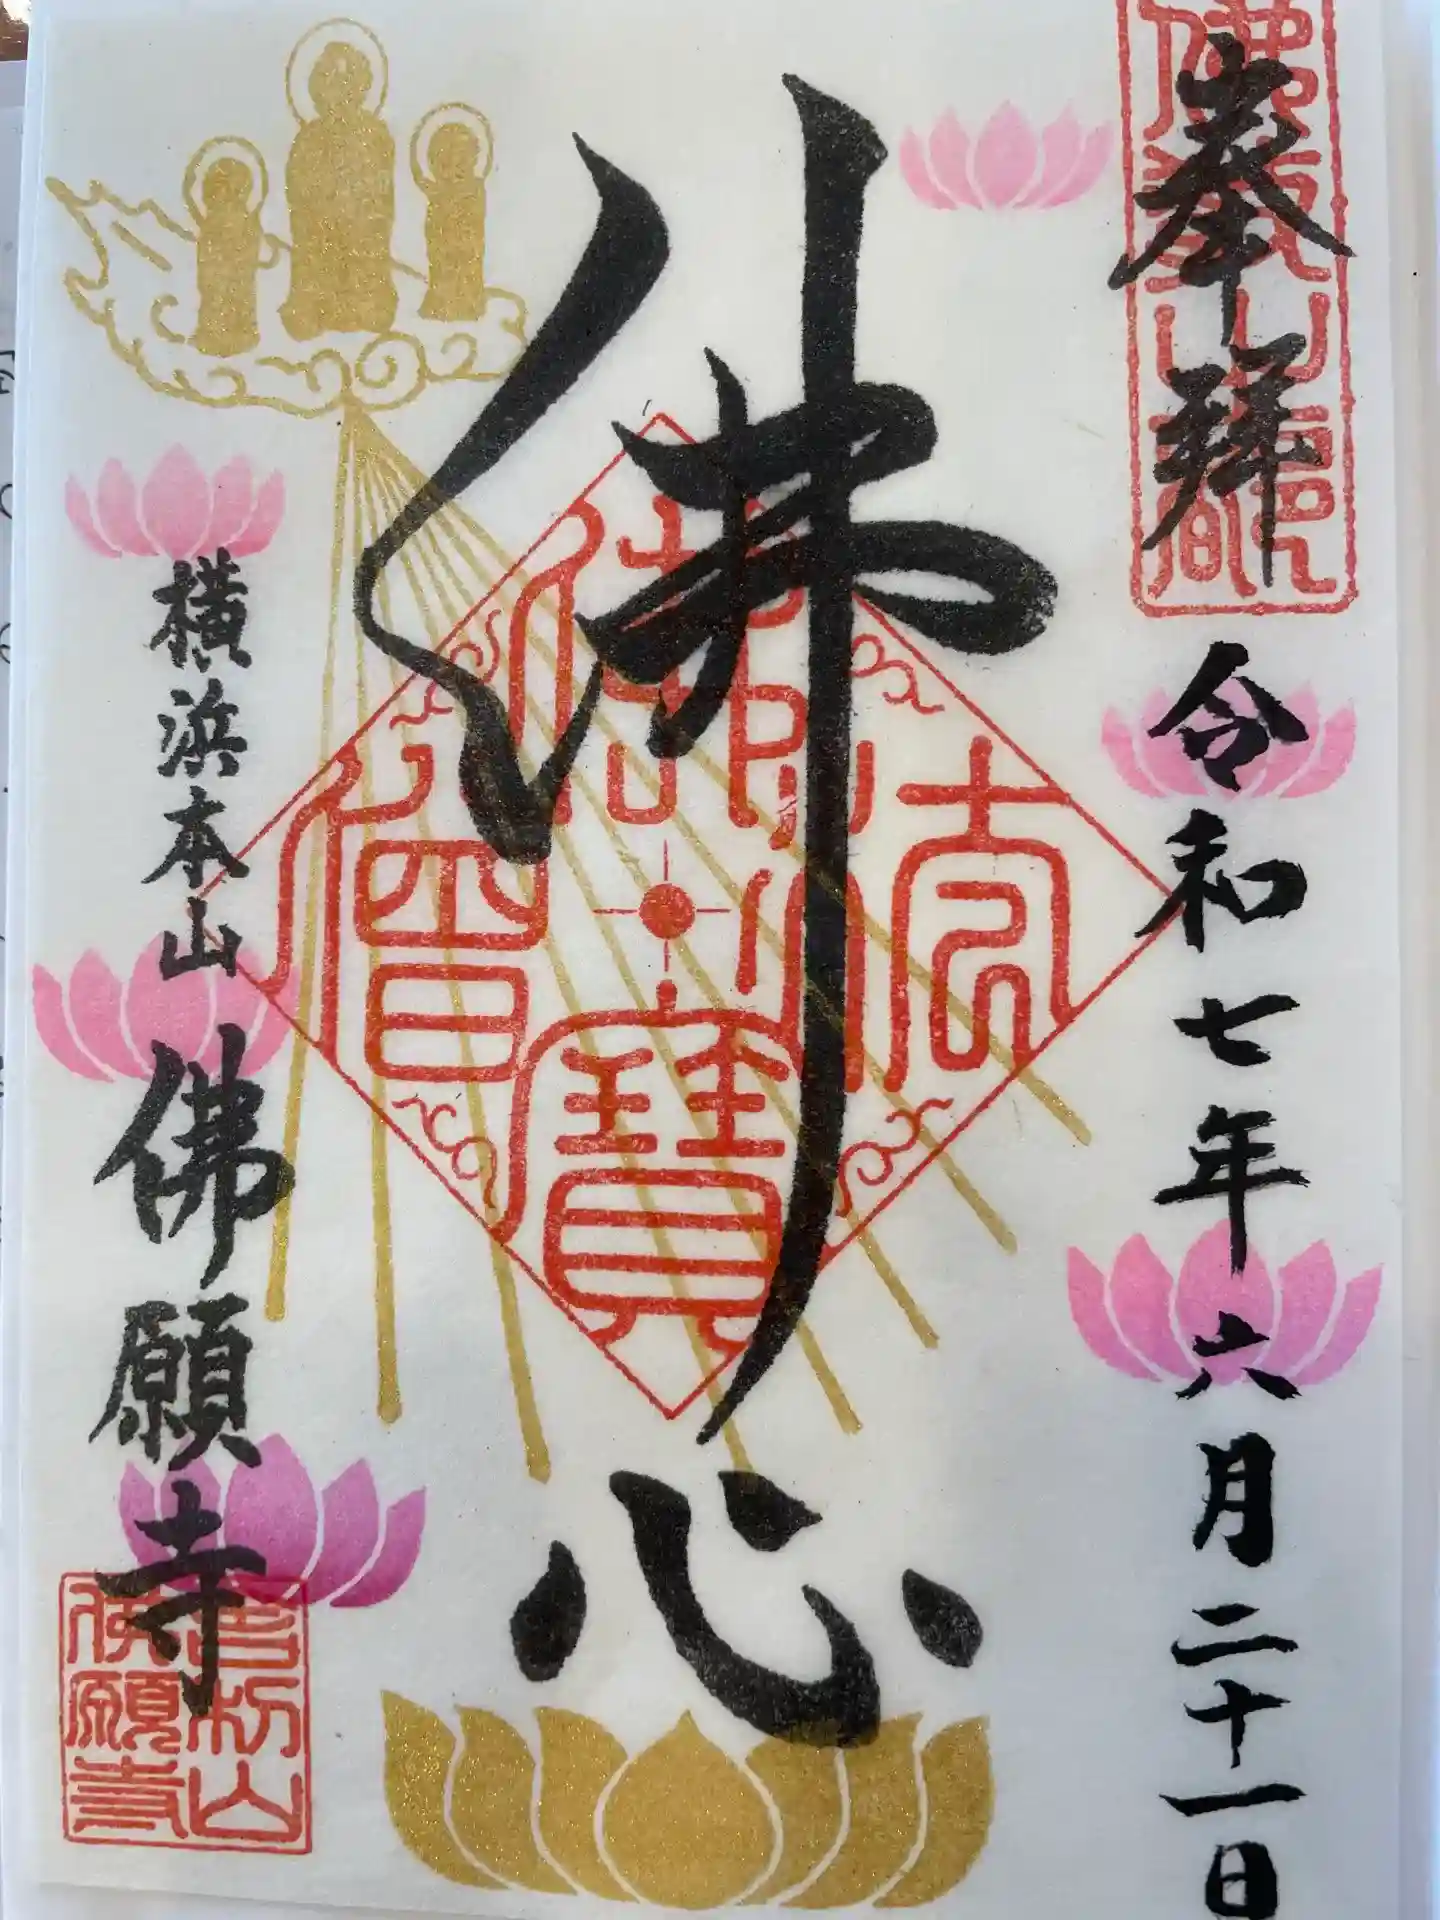 奉拜
令和七年六月二十一日
佛心
佛法僧寶
横浜本山 佛願寺